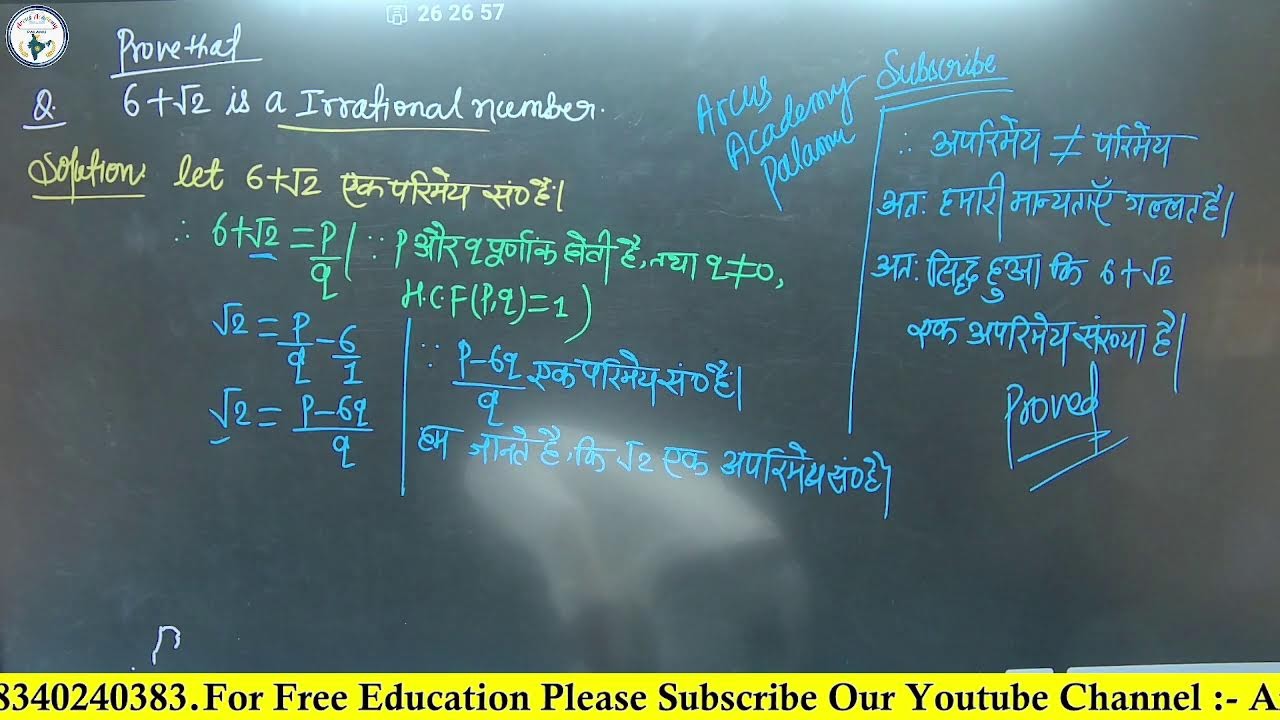 26 26 57
Arcus Academy
PALAMU
Prove that
Q. 6+√2 is a Irrational number.
Solution: let 6+√2 एक परिमेय सं० है।
∴ 6+√2 = p/q ( ∵ p और q पूर्णाक होती है, तथा q≠0,
H.C.F(p,q)=1 )
√2 = p/q - 6/1
√2 = p-6q/q
∵ p-6q/q एक परिमेय सं० है।
हम जानते है, कि √2 एक अपरिमेय सं० है।
Arcus
Academy
Palamu
Subscribe
∴ अपरिमेय ≠ परिमेय
अतः हमारी मान्यताएँ गल्लत है।
अतः सिद्ध हुआ कि 6+√2
एक अपरिमेय संख्या है।
Proved
8340240383.For Free Education Please Subscribe Our Youtube Channel :- A